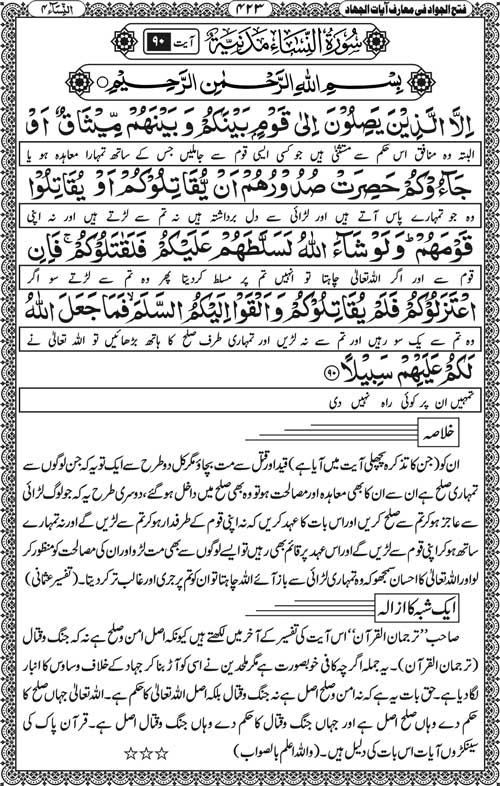 فتح الجواد فی معارف آیات الجهاد
۴۲۳
النساء ۴
سُورَةُ النِّسَاءِ مَدَنِيَّةٌ
آیت ۹۰
بِسْمِ اللهِ الرَّحْمٰنِ الرَّحِيْمِ
اِلَّا الَّذِيْنَ يَصِلُوْنَ اِلٰى قَوْمٍۭ بَيْنَكُمْ وَ بَيْنَهُمْ مِّيْثَاقٌ اَوْ
البتہ وہ منافق اس حکم سے مستثنیٰ ہیں جو کسی ایسی قوم سے جاملیں جس کے ساتھ تمہارا معاہدہ ہو یا
جَآءُوْكُمْ حَصِرَتْ صُدُوْرُهُمْ اَنْ يُّقَاتِلُوْكُمْ اَوْ يُقَاتِلُوْا
وہ جو تمہارے پاس آتے ہیں اور لڑائی سے دل برداشتہ ہیں نہ تم سے لڑتے ہیں اور نہ اپنی
قَوْمَهُمْ ؕ وَلَوْ شَآءَ اللهُ لَسَلَّطَهُمْ عَلَيْكُمْ فَلَقٰتَلُوْكُمْ ۚ فَاِنِ
قوم سے اور اگر اللہ تعالیٰ چاہتا تو انہیں تم پر مسلط کردیتا پھر وہ تم سے لڑتے سو اگر
اعْتَزَلُوْكُمْ فَلَمْ يُقَاتِلُوْكُمْ وَاَلْقَوْا اِلَيْكُمُ السَّلَمَ ۙ فَمَا جَعَلَ اللهُ
وہ تم سے یک سو رہیں اور تم سے نہ لڑیں اور تمہاری طرف صلح کا ہاتھ بڑھائیں تو اللہ تعالیٰ نے
لَكُمْ عَلَيْهِمْ سَبِيْلًا ۹۰
تمہیں ان پر کوئی راہ نہیں دی
خلاصہ
ان کو (جن کا تذکرہ پچھلی آیت میں آیا ہے) قید اور قتل سے مت بچاؤ مگر کل دو طرح سے ایک تو یہ کہ جن لوگوں سے
تمہاری صلح ہے ان سے ان کا بھی معاہدہ اور مصالحت ہو تو وہ بھی صلح میں داخل ہو گئے، دوسری طرح یہ کہ جو لوگ لڑائی
سے عاجز ہو کر تم سے صلح کریں اور اس بات کا عہد کریں کہ نہ اپنی قوم کے طرفدار ہو کر تم سے لڑیں گے اور نہ تمہارے
ساتھ ہو کر اپنی قوم سے لڑیں گے اور اس عہد پر قائم بھی رہیں تو ایسے لوگوں سے بھی مت لڑو اور ان کی مصالحت کو منظور کر
لو اور اللہ تعالیٰ کا احسان سمجھو کہ وہ تمہاری لڑائی سے باز آئے اللہ چاہتا تو ان کو تم پر جری اور غالب تر کر دیتا۔ (تفسیر عثمانی)
ایک شبہ کا ازالہ
صاحب ’’ترجمان القرآن‘‘ اس آیت کی تفسیر کے آخر میں لکھتے ہیں کیونکہ اصل امن و صلح ہے نہ کہ جنگ و قتال
(ترجمان القرآن)۔ یہ جملہ اگرچہ کافی خوبصورت ہے مگر ملحدین نے اسی کو آڑ بنا کر جہاد کے خلاف وساوس کا انبار
لگا دیا ہے۔ حق بات یہ ہے کہ نہ امن و صلح اصل ہے نہ جنگ و قتال بلکہ اصل اللہ تعالیٰ کا حکم ہے۔ اللہ تعالیٰ جہاں صلح کا
حکم دے وہاں صلح اصل ہے اور جہاں جنگ و قتال کا حکم دے وہاں جنگ و قتال اصل ہے۔ قرآن پاک کی
سینکڑوں آیات اس بات کی دلیل ہیں۔ (واللہ اعلم بالصواب)
☆☆☆